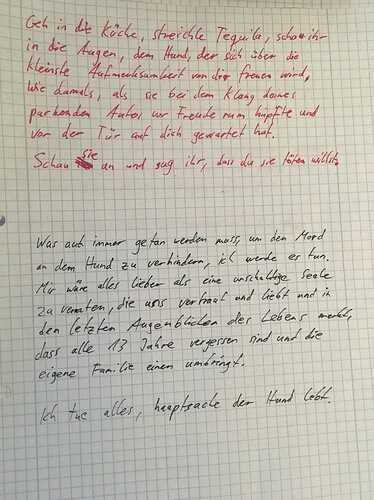 Geh in die Küche, streichle Tequila, schau ihr
in die Augen, dem Hund, der sich über die
kleinste Aufmerksamkeit von dir freuen wird,
wie damals, als sie bei dem Klang deines
parkenden Autos vor Freude rum hüpfte und
vor der Tür auf dich gewartet hat.
Schau sie an und sag ihr, dass du sie töten willst.
Was auch immer getan werden muss, um den Mord
an dem Hund zu verhindern, ich werde es tun.
Mir wäre alles lieber als eine unschuldige Seele
zu verraten, die uns vertraut und liebt und in
den letzten Augenblicken des Lebens merkt,
dass alle 13 Jahre vergessen sind und die
eigene Familie einen umbringt.
Ich tue alles, hauptsache der Hund lebt.